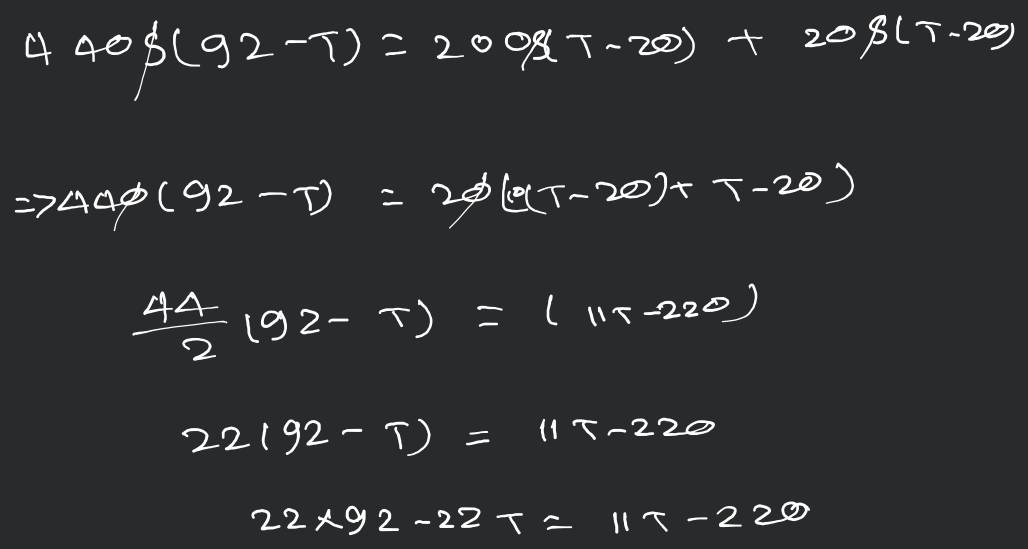 440s(92-T) = 200s(T-20) + 20s(T-20)
=>440(92-T) = 20(10(T-20)+T-20)
44/2 (92-T) = (11T-220)
22(92-T) = 11T-220
22×92-22T = 11T-220